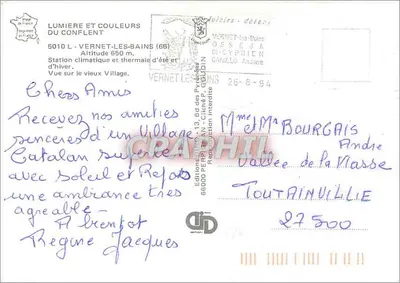 LUMIERE ET COULEURS
DU CONFLENT
5010 L - VERNET-LES-BAINS (66)
Altitude 650 m.
Station climatique et thermale d'été et
d'hiver.
Vue sur le vieux Village.
VERNET-les-Bains
OSSEJA
St-CYPRIEN
CANILLO Andorre
VERNET-LES-BAINS
26-8-94
Chers Amis
Recevez nos amitiés
sincères d'un Village
Catalan superbe
avec soleil et Repos
une ambiance très
agréable —
A bientot
Regine Jacques
66000 PERPIGNAN - Cliché P. GOUDIN
Reproduction interdite
CPAPHIL
Mme Mr BOURGAIS
Andre
Vallée de la Masse
TOUTAINVILLIE
27500